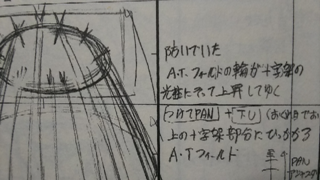 防いでいた
A.T.フィールドの輪が十字架の
光柱にそって上昇してゆく
つけてPAN + T.U
上の十字架部分にひっかかる
A.Tフィールド
PAN